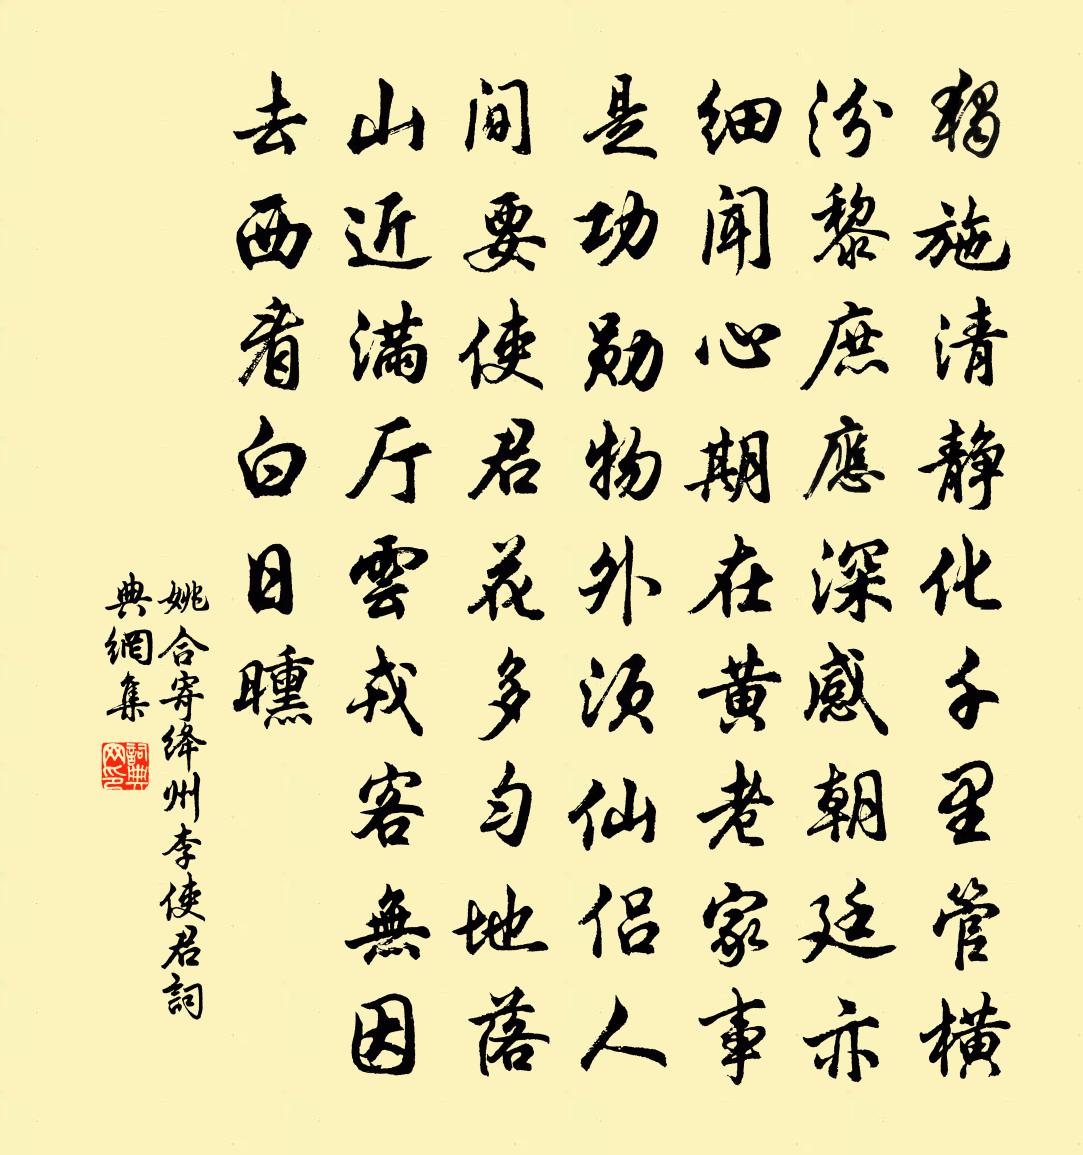 獨施清静化千里管橫
汾黎庶應深感朝廷亦
细聞心期在黄老家事
是功勋物外须仙侣人
间要使君花多匀地落
山近满厅雲戎客無因
去西看白日曛
姚合寄绛州李使君詞
典網集
詞典网印